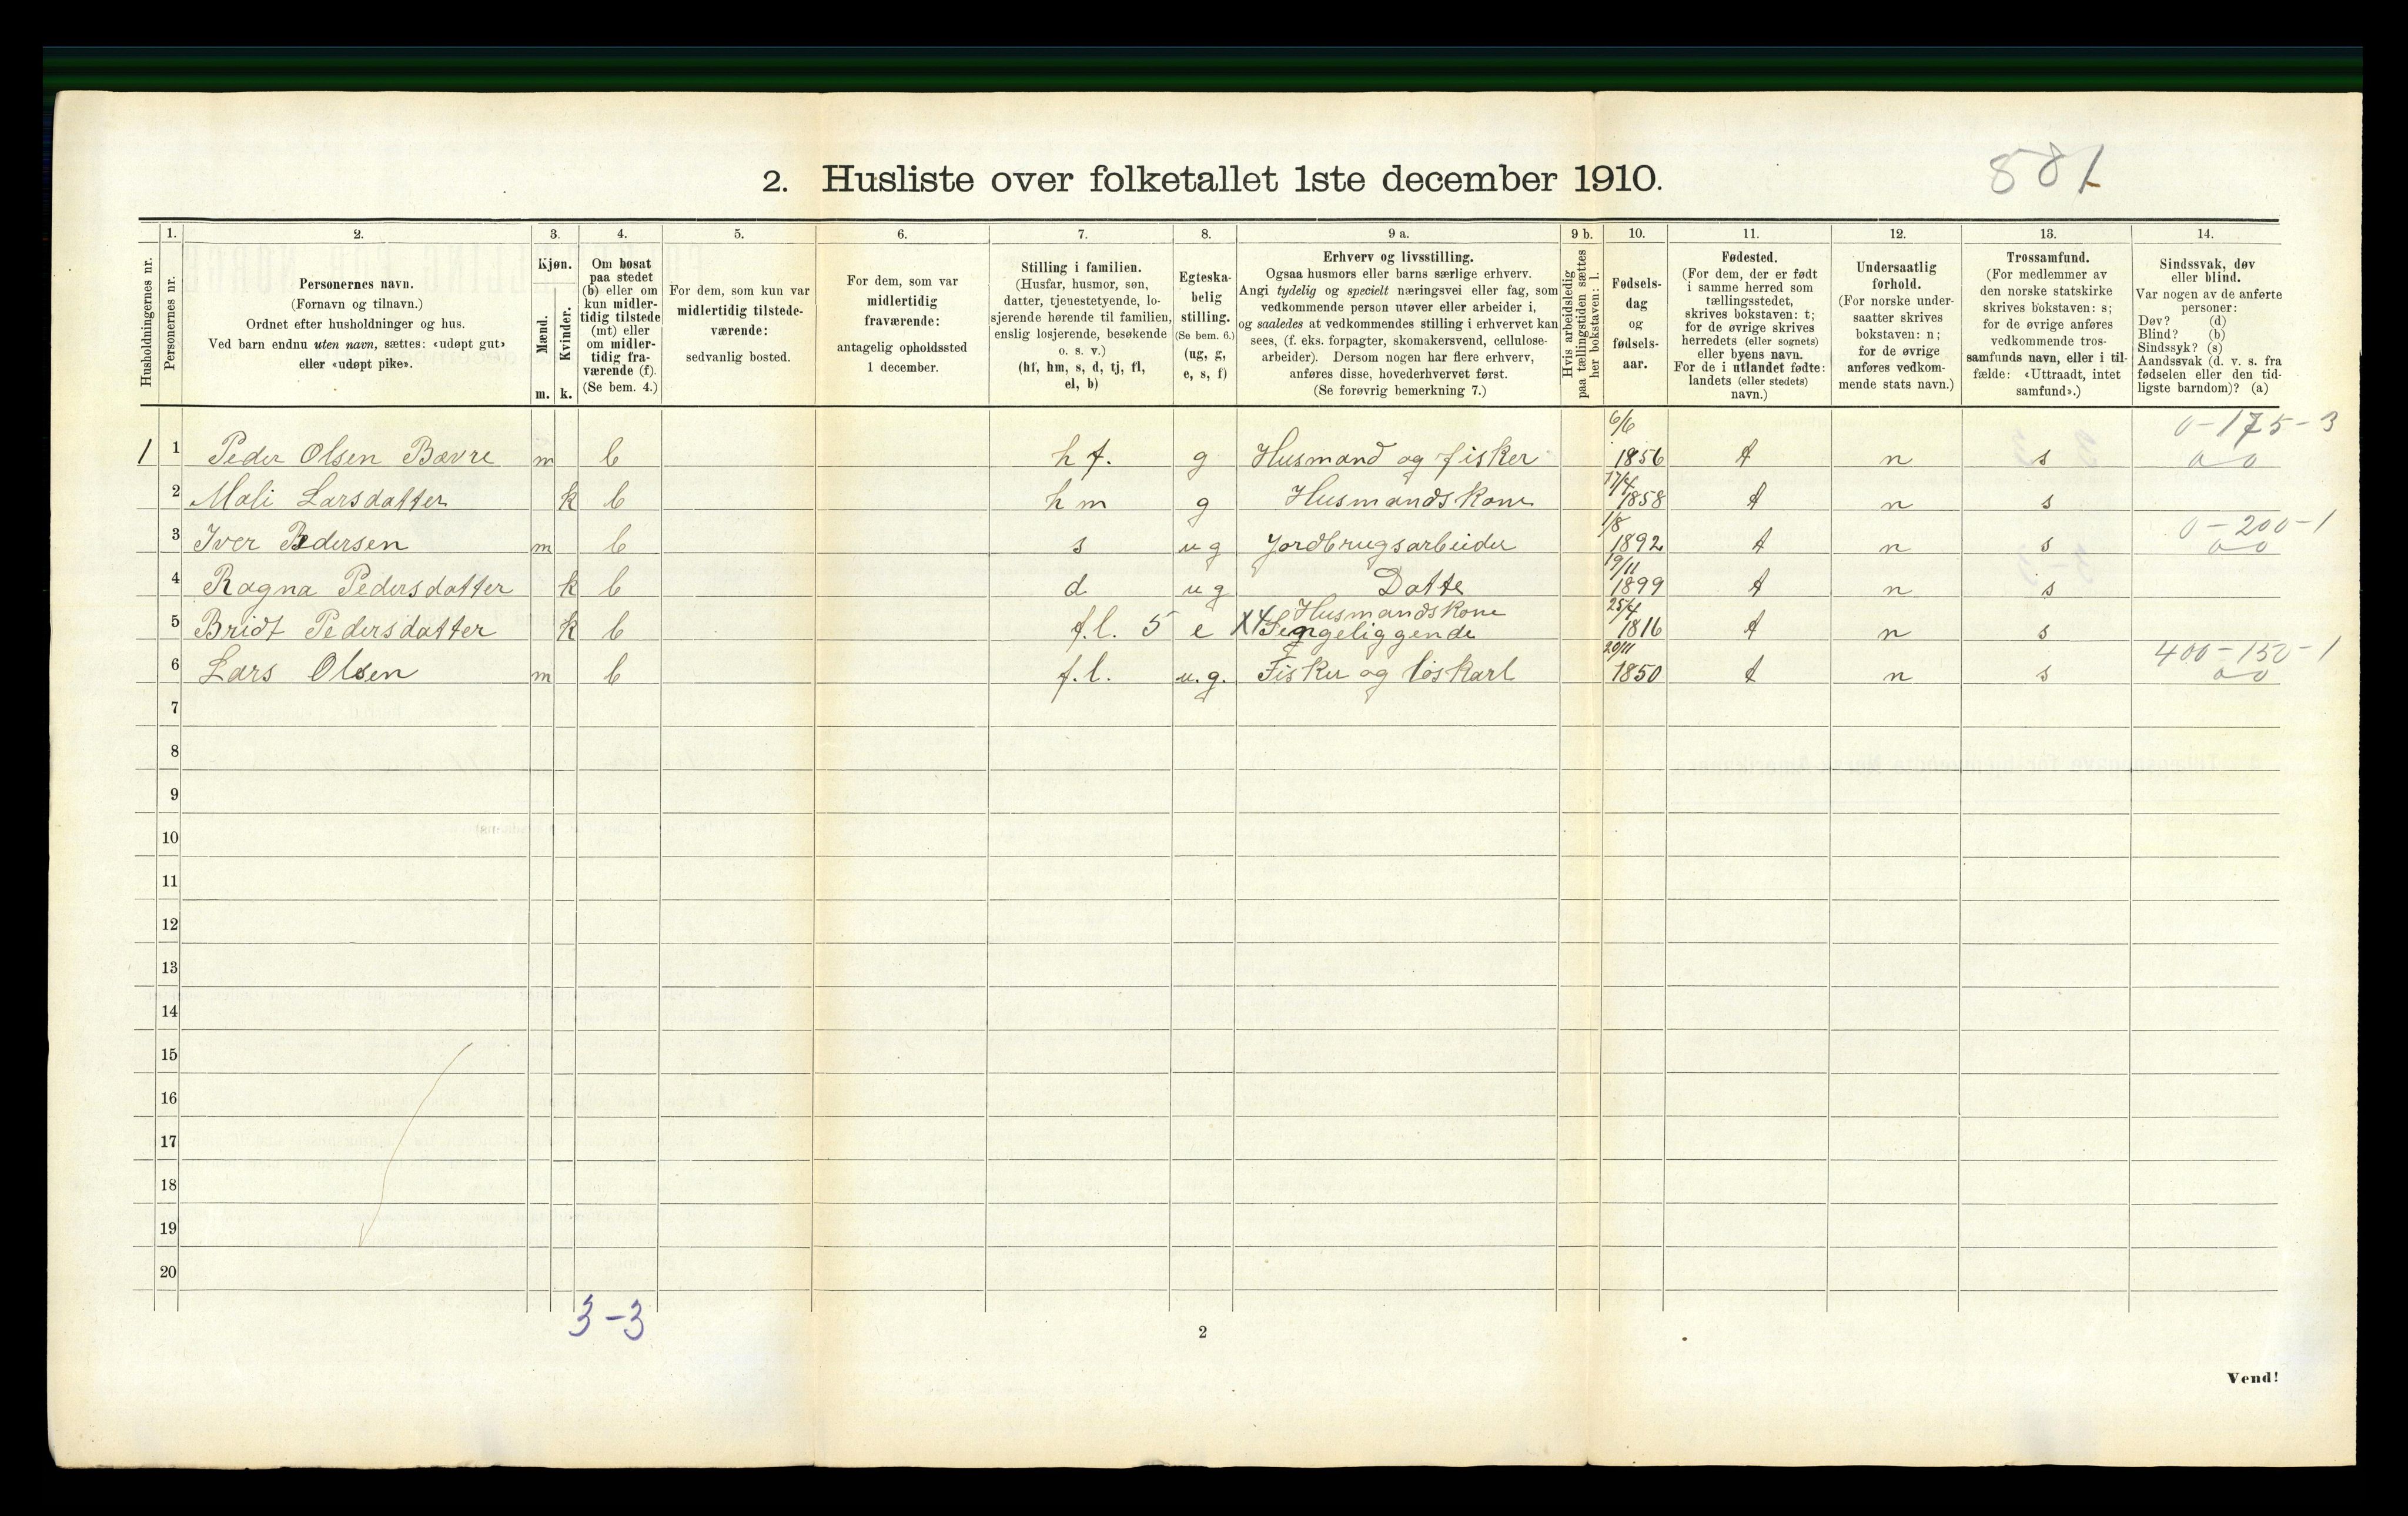 2. Husliste over folketallet 1ste december 1910.
881
Husholdningernes nr.
1.
Personernes nr.
2.
Personernes navn.
(Fornavn og tilnavn.)
Ordnet efter husholdninger og hus.
Ved barn endnu uten navn, sættes: «udøpt gut»
eller «udøpt pike».
3.
Kjøn.
Mænd.
Kvinder.
m. k.
4.
Om bosat
paa stedet
(b) eller om
kun midler-
tidig tilstede
(mt) eller
om midler-
tidig fra-
værende (f).
(Se bem. 4.)
5.
For dem, som kun var
midlertidig tilstede-
værende:
sedvanlig bosted.
6.
For dem, som var
midlertidig
fraværende:
antagelig opholdssted
1 december.
7.
Stilling i familien.
(Husfar, husmor, søn,
datter, tjenestetyende, lo-
sjerende hørende til familien,
enslig losjerende, besøkende
o. s. v.)
(hf, hm, s, d, tj, fl,
el, b)
8.
Egteska-
belig
stilling.
(Se bem. 6.)
(ug, g,
e, s, f)
9 a.
Erhverv og livsstilling.
Ogsaa husmors eller barns særlige erhverv.
Angi tydelig og specielt næringsvei eller fag, som
vedkommende person utøver eller arbeider i,
og saaledes at vedkommendes stilling i erhvervet kan
sees, (f. eks. forpagter, skomakersvend, cellulose-
arbeider). Dersom nogen har flere erhverv,
anføres disse, hovederhvervet først.
(Se forøvrig bemerkning 7.)
9 b.
Hvis arbeidsledig
paa tællingstiden sættes
her bokstaven: l.
10.
Fødsels-
dag
og
fødsels-
aar.
11.
Fødested.
(For dem, der er født
i samme herred som
tællingsstedet,
skrives bokstaven: t;
for de øvrige skrives
herredets (eller sognets)
eller byens navn.
For de i utlandet fødte:
landets (eller stedets)
navn.)
12.
Undersaatlig
forhold.
(For norske under-
saatter skrives
bokstaven: n;
for de øvrige
anføres vedkom-
mende stats navn.)
13.
Trossamfund.
(For medlemmer av
den norske statskirke
skrives bokstaven: s;
for de øvrige anføres
vedkommende tros-
samfunds navn, eller i til-
fælde: «Uttraadt, intet
samfund».)
14.
Sindssvak, døv
eller blind.
Var nogen av de anførte
personer:
Døv? (d)
Blind? (b)
Sindssyk? (s)
Aandssvak (d. v. s. fra
fødselen eller den tid-
ligste barndom)? (a)
6/6 0-175-3
1 1 Peder Olsen Bævre m b hf. g Husmand og fisker 1856 t n s
17/4
2 Mali Larsdatter k b hm g Husmandskone 1858 t n s
1/8 0-200-1
3 Iver Pedersen m b s ug Jordbrugsarbeider 1892 t n s
19/11
4 Ragna Pedersdatter k b d ug Datte 1899 t n s
Husmandskone 25/4
5 Bridt Pedersdatter k b f.l. 5 e Sengeliggende 1816 t n s
20/11 400-150-1
6 Lars Olsen m b f.l. u.g. Fisker og løskarl 1850 t n s
7
8
9
10
11
12
13
14
15
16
17
18
19
20
3-3
2
Vend!